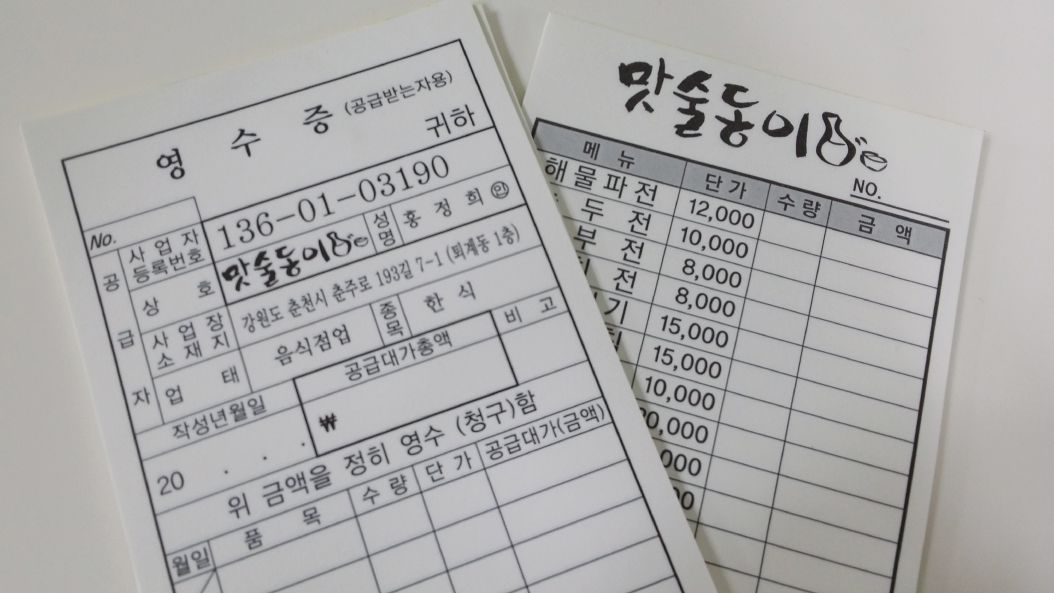 영 수 증 (공급받는자용)
귀하
No.
공급자
사업자등록번호 136-01-03190
상 호 맛술동이 성명 홍정희 ㊞
사업장소재지 강원도 춘천시 춘주로 193길 7-1 (퇴계동 1층)
업 태 음식점업 종목 한 식
작성년월일 공급대가총액 비 고
20 . . . ₩
위 금액을 정히 영수 (청구)함
월일 품 목 수 량 단 가 공급대가(금액)
맛술동이
NO.
메 뉴 단 가 수 량 금 액
해물파전 12,000
두 전 10,000
부 전 8,000
전 8,000
기 15,000
15,000
10,000
0,000
,000